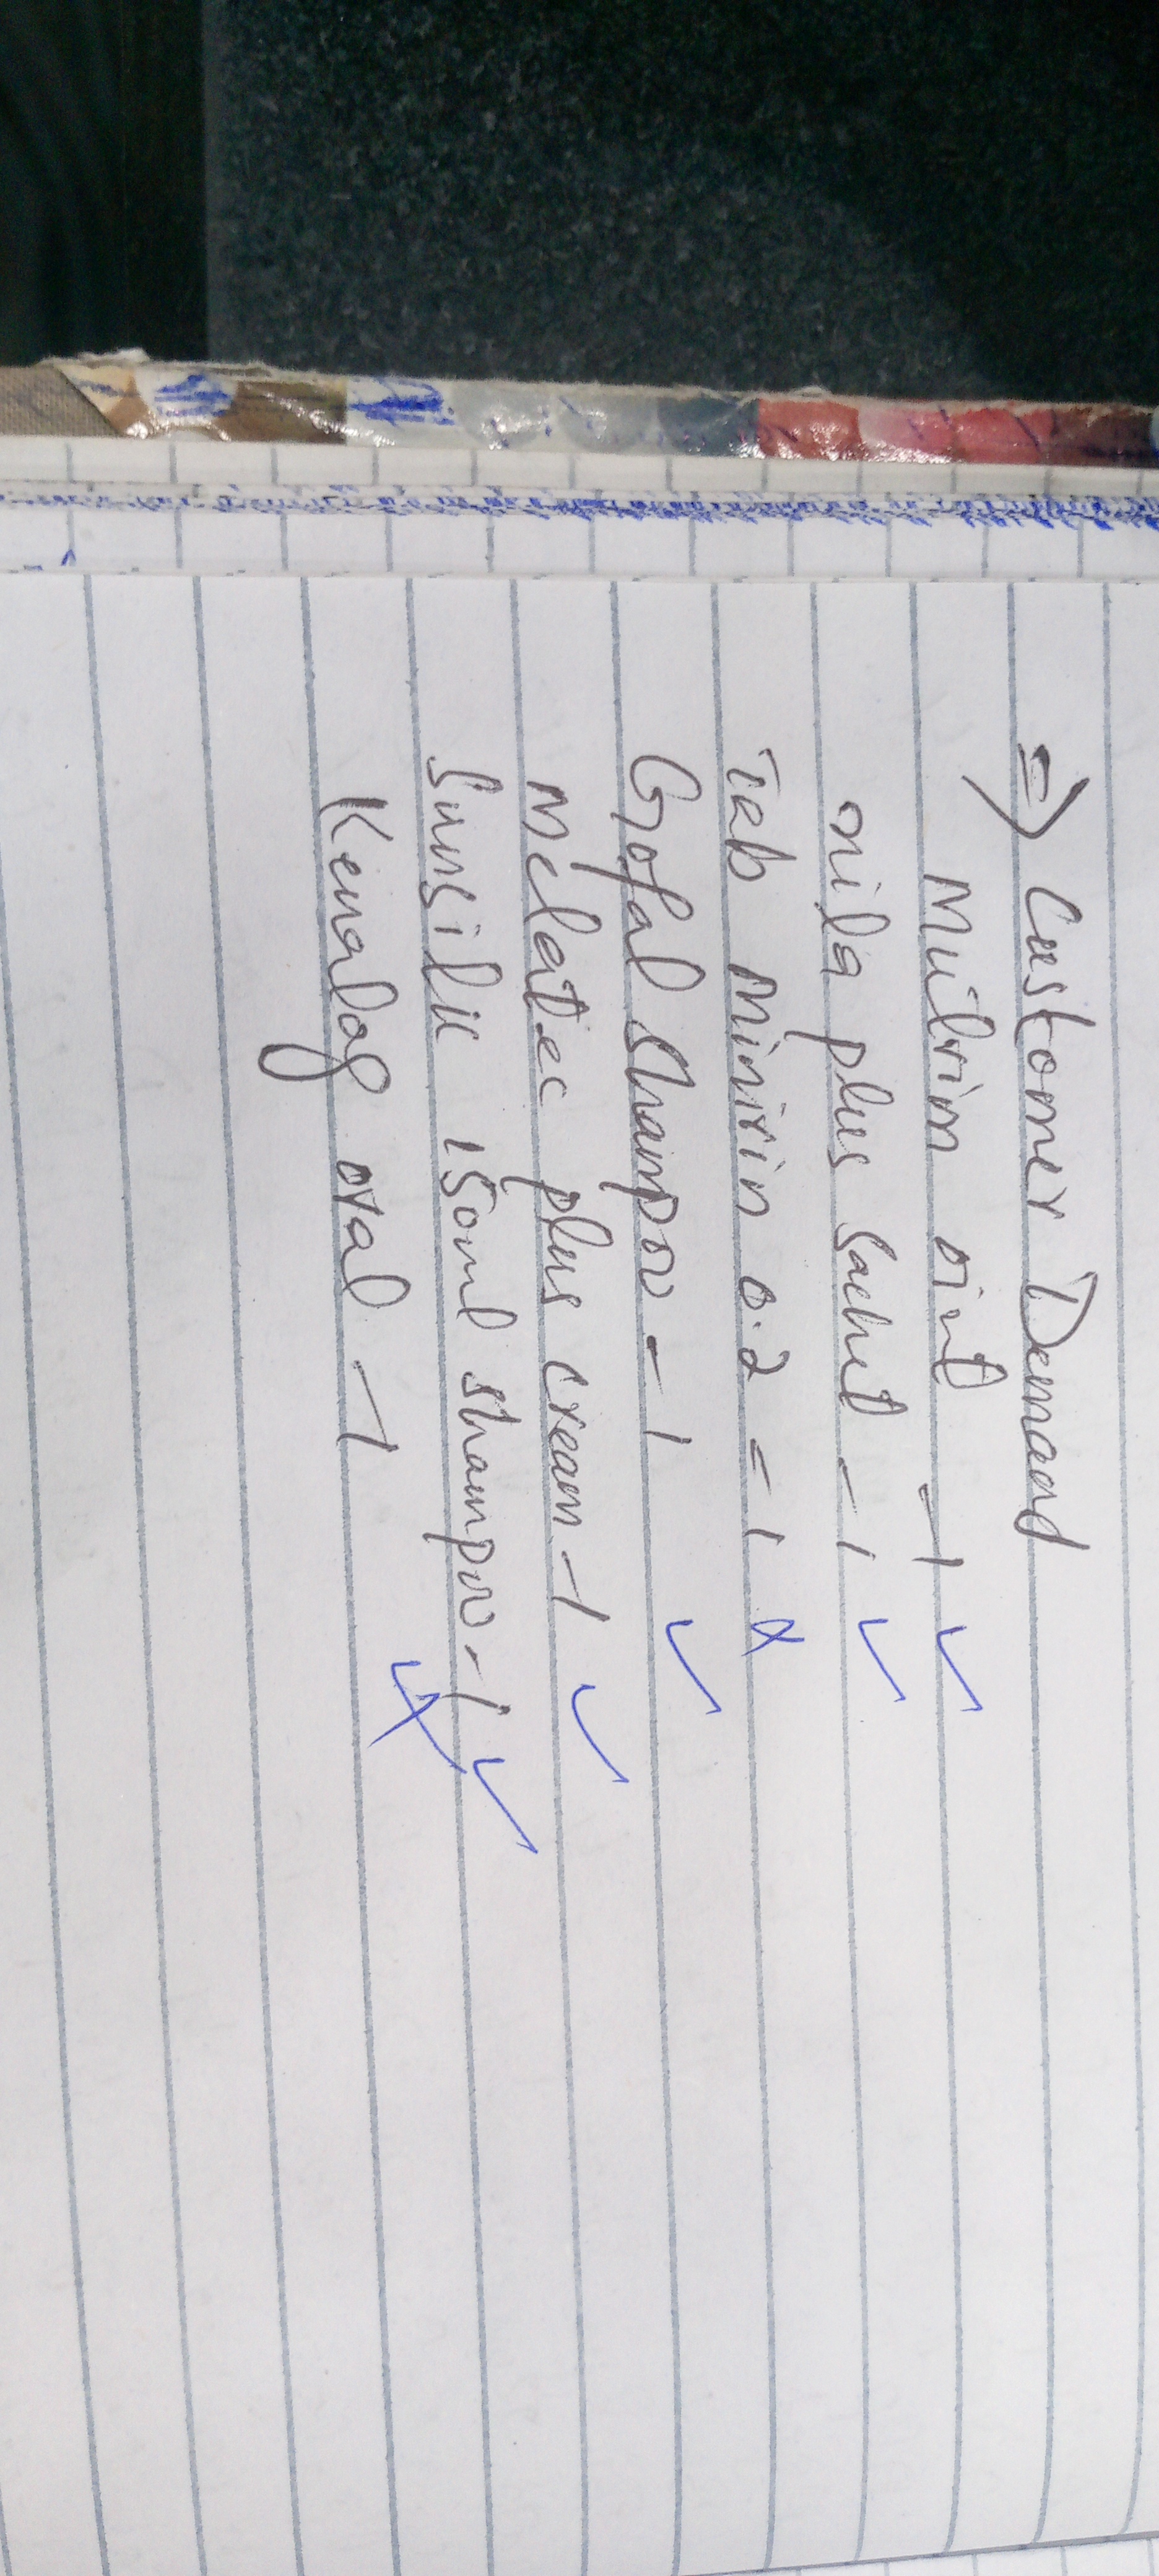 ⇒ Customer Demand
Multrim oint = 1 ✓
nila plus Sachet - 1 ✓
Tab Minirin 0.2 = 1 x
Gofal Shampoo = 1 ✓
Melatec plus cream - 1 ✓
Sunsilk 150ml shampoo - 1 ✓
Kenalog oral - 1 x